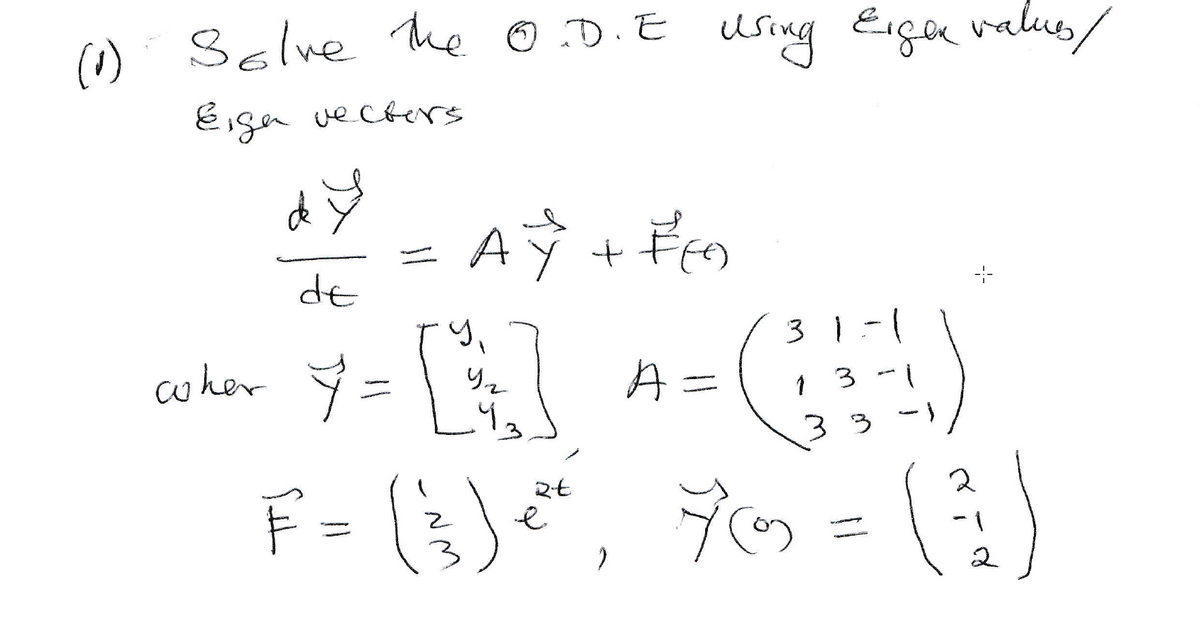 (1) Solve the O.D.E using Eigen values/
Eigen vectors
dY⃗/dt = AY⃗ + F⃗(t)
wher Y⃗ = [y₁ y₂ y₃], A = (3 1 -1 1 3 -1 3 3 -1)
F⃗ = (1 2 3) e^2t, Y⃗(0) = (2 -1 2)